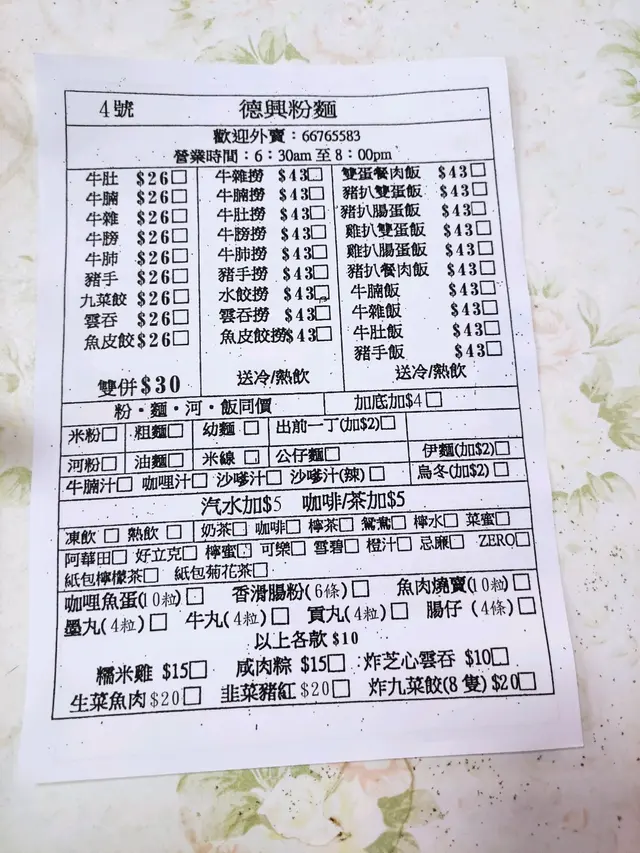 4號 德興粉麵
歡迎外賣：66765583
營業時間：6：30am 至 8：00pm
牛肚 $26□ 牛雜撈 $43□ 雙蛋餐肉飯 $43□
牛腩 $26□ 牛腩撈 $43□ 豬扒雙蛋飯 $43□
牛雜 $26□ 牛肚撈 $43□ 豬扒腸蛋飯 $43□
牛膀 $26□ 牛膀撈 $43□ 雞扒雙蛋飯 $43□
牛肺 $26□ 牛肺撈 $43□ 雞扒腸蛋飯 $43□
豬手 $26□ 豬手撈 $43□ 豬扒餐肉飯 $43□
九菜餃 $26□ 水餃撈 $43□ 牛腩飯 $43□
雲吞 $26□ 雲吞撈 $43□ 牛雜飯 $43□
魚皮餃 $26□ 魚皮餃撈 $43□ 牛肚飯 $43□
豬手飯 $43□
雙併 $30 送冷/熱飲 送冷/熱飲
粉・麵・河・飯同價 加底加$4□
米粉□ 粗麵□ 幼麵□ 出前一丁(加$2)□
河粉□ 油麵□ 米線□ 公仔麵□ 伊麵(加$2)□
牛腩汁□ 咖哩汁□ 沙嗲汁□ 沙嗲汁(辣)□ 烏冬(加$2)□
汽水加$5 咖啡/茶加$5
凍飲□ 熱飲□ 奶茶□ 咖啡□ 檸茶□ 鴛鴦□ 檸水□ 菜蜜□
阿華田□ 好立克□ 檸蜜□ 可樂□ 雪碧□ 橙汁□ 忌廉□ ZERO□
紙包檸檬茶□ 紙包菊花茶□
咖哩魚蛋(10粒)□ 香滑腸粉(6條)□ 魚肉燒賣(10粒)□
墨丸(4粒)□ 牛丸(4粒)□ 貢丸(4粒)□ 腸仔(4條)□
以上各款 $10
糯米雞 $15□ 咸肉粽 $15□ 炸芝心雲吞 $10□
生菜魚肉 $20□ 韭菜豬紅 $20□ 炸九菜餃(8隻) $20□